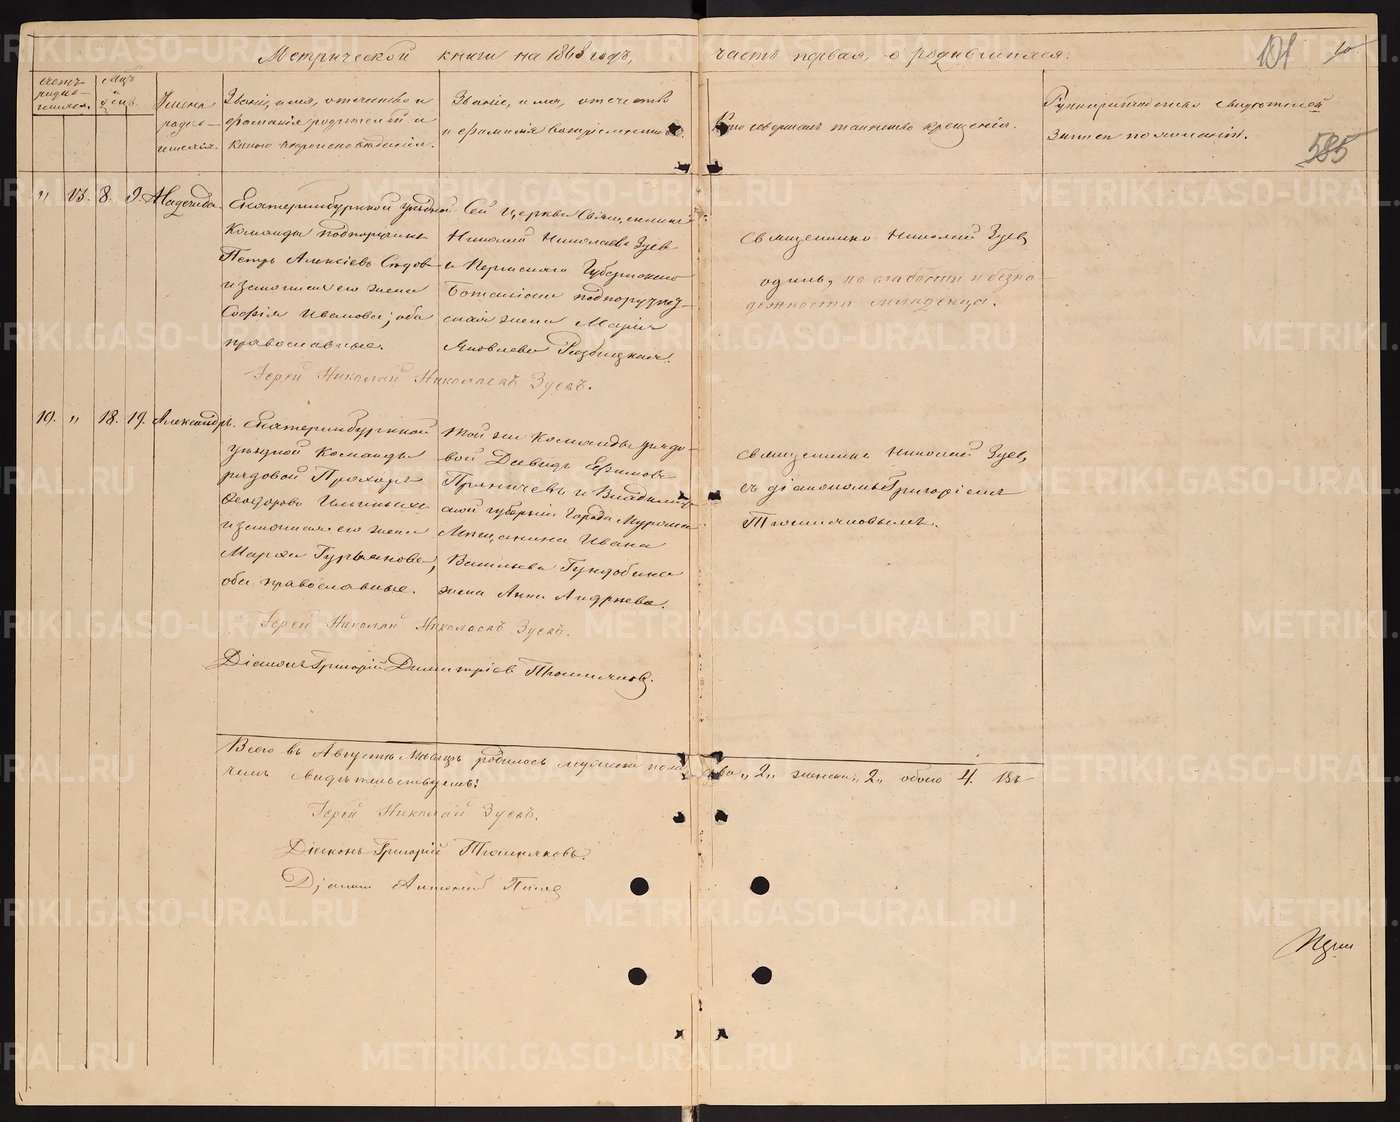 Метрической книги на 1868 годъ, часть первая, о родившихся.
101
585
счетъ родив-шихся.
Мѣц. и день.
Имена родив-шихся.
Званіе, имя, отечество и
фамилія родителей и
какого вѣроисповѣданія.
Званіе, имя, отечество
и фамилія воспріемниковъ.
Кто совершалъ таинство крещенія.
Рукоприкладство свидѣтелей
записи по желанію.
" 13. 8. 9. Надежда.
Екатеринбургской уѣздной
Команды подпоручикъ
Петръ Алексіевъ
и законная его жена
Софія Иванова; оба
православные.
Сей Церкви Священникъ
Николай Николаевъ Зуевъ
и Пермскаго Губернскаго
Баталіона подпоручиче-
ская жена Марія
Яковлева
Священникъ Николай Зуевъ
одинъ, по слабости и безна-
дежности младенца.
Іерей Николай Николаевъ Зуевъ.
10. " 18. 19. Александръ.
Екатеринбургской
уѣздной Команды
рядовой Прохоръ
Феодоровъ Ильиныхъ
и законная его жена
Марѳа Гурьянова;
оба православные.
Той же Команды рядо-
вой Давидъ Ефимовъ
и Владимір-
ской губерніи города Мурома
Мѣщанина Ивана
Васильева Гундобина
жена Анна Андреева.
Священникъ Николай Зуевъ
съ діакономъ Григоріемъ
Тюшняковымъ.
Іерей Николай Николаевъ Зуевъ.
Діаконъ Григорій Димитріевъ Тюшняковъ.
Всего въ Августѣ Мѣсяцѣ родилось мужеска пола два "2" женска "2" обоего 4. Въ
чемъ свидѣтельствуемъ:
Іерей Николай Зуевъ.
Діаконъ Григорій Тюшняковъ.
METRIKI.GASO-URAL.RU